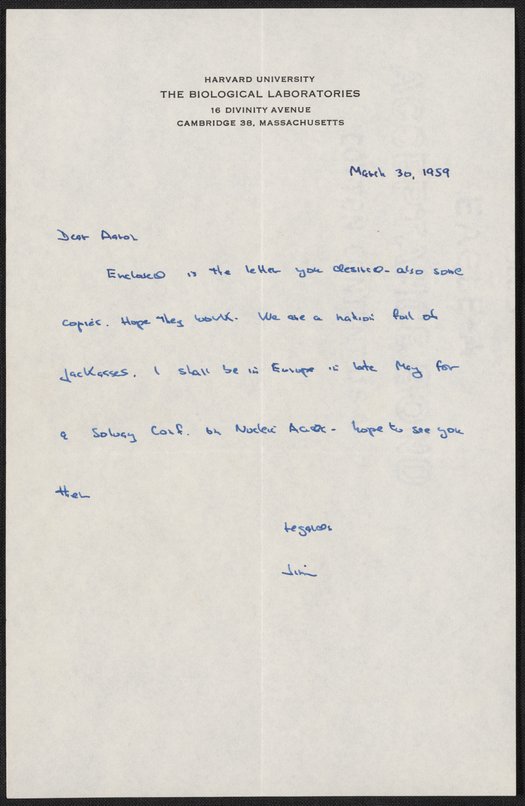 HARVARD UNIVERSITY
THE BIOLOGICAL LABORATORIES
16 DIVINITY AVENUE
CAMBRIDGE 38, MASSACHUSETTS
March 30, 1959
Dear Aaron
Enclosed is the letter you desired - also some
copies. Hope they work. We are a nation full of
Jackasses. I shall be in Europe in late May for
a Solvay Conf. on Nucleic Acids - hope to see you
then
regards
Jim